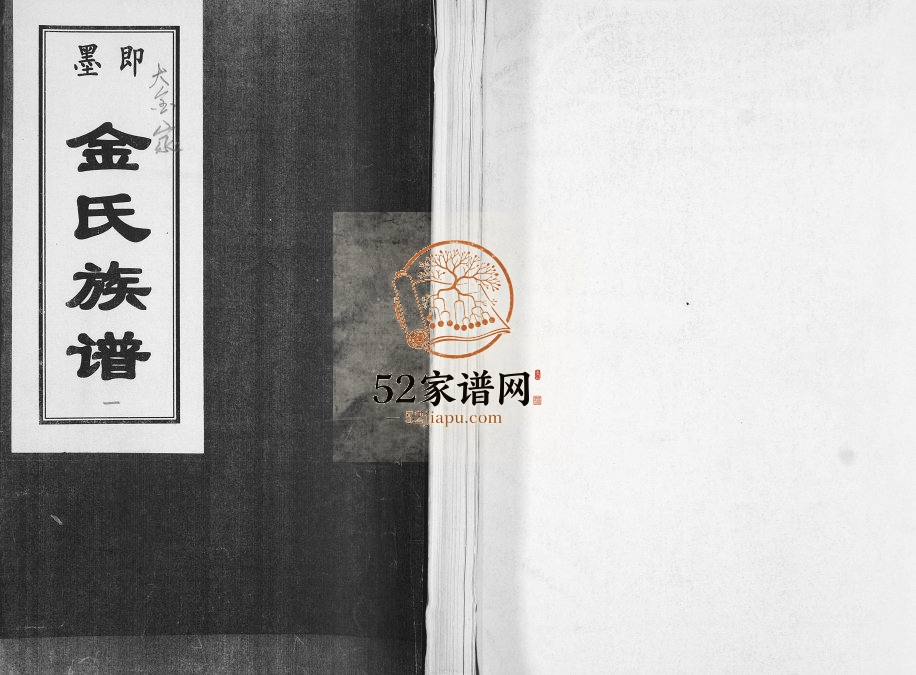 即墨
大金家
金氏族谱
一
52家谱网
52jiapu.com